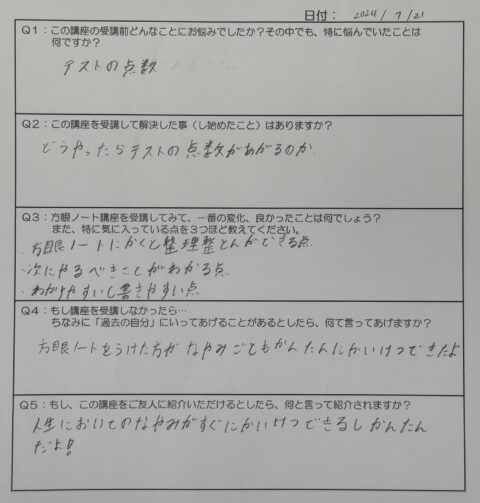 日付： 2024 / 9 / 21
Q1：この講座の受講前どんなことにお悩みでしたか？その中でも、特に悩んでいたことは
何ですか？
テストの点数
Q2：この講座を受講して解決した事（し始めたこと）はありますか？
どうやったらテストの点数があがるのか
Q3：方眼ノート講座を受講してみて、一番の変化、良かったことは何でしょう？
また、特に気に入っている点を３つほど教えてください。
・方眼ノートにかくと整理整とんができる点
・次にやるべきことがわかる点
・わかりやすいし書きやすい点
Q4：もし講座を受講しなかったら…
ちなみに「過去の自分」にいってあげることがあるとしたら、何て言ってあげますか？
方眼ノートをうけた方がなやみごともかんたんにかいけつできたよ
Q5：もし、この講座をご友人に紹介いただけるとしたら、何と言って紹介されますか？
人生においてのなやみがすぐにかいけつできるしかんたん
だよ！